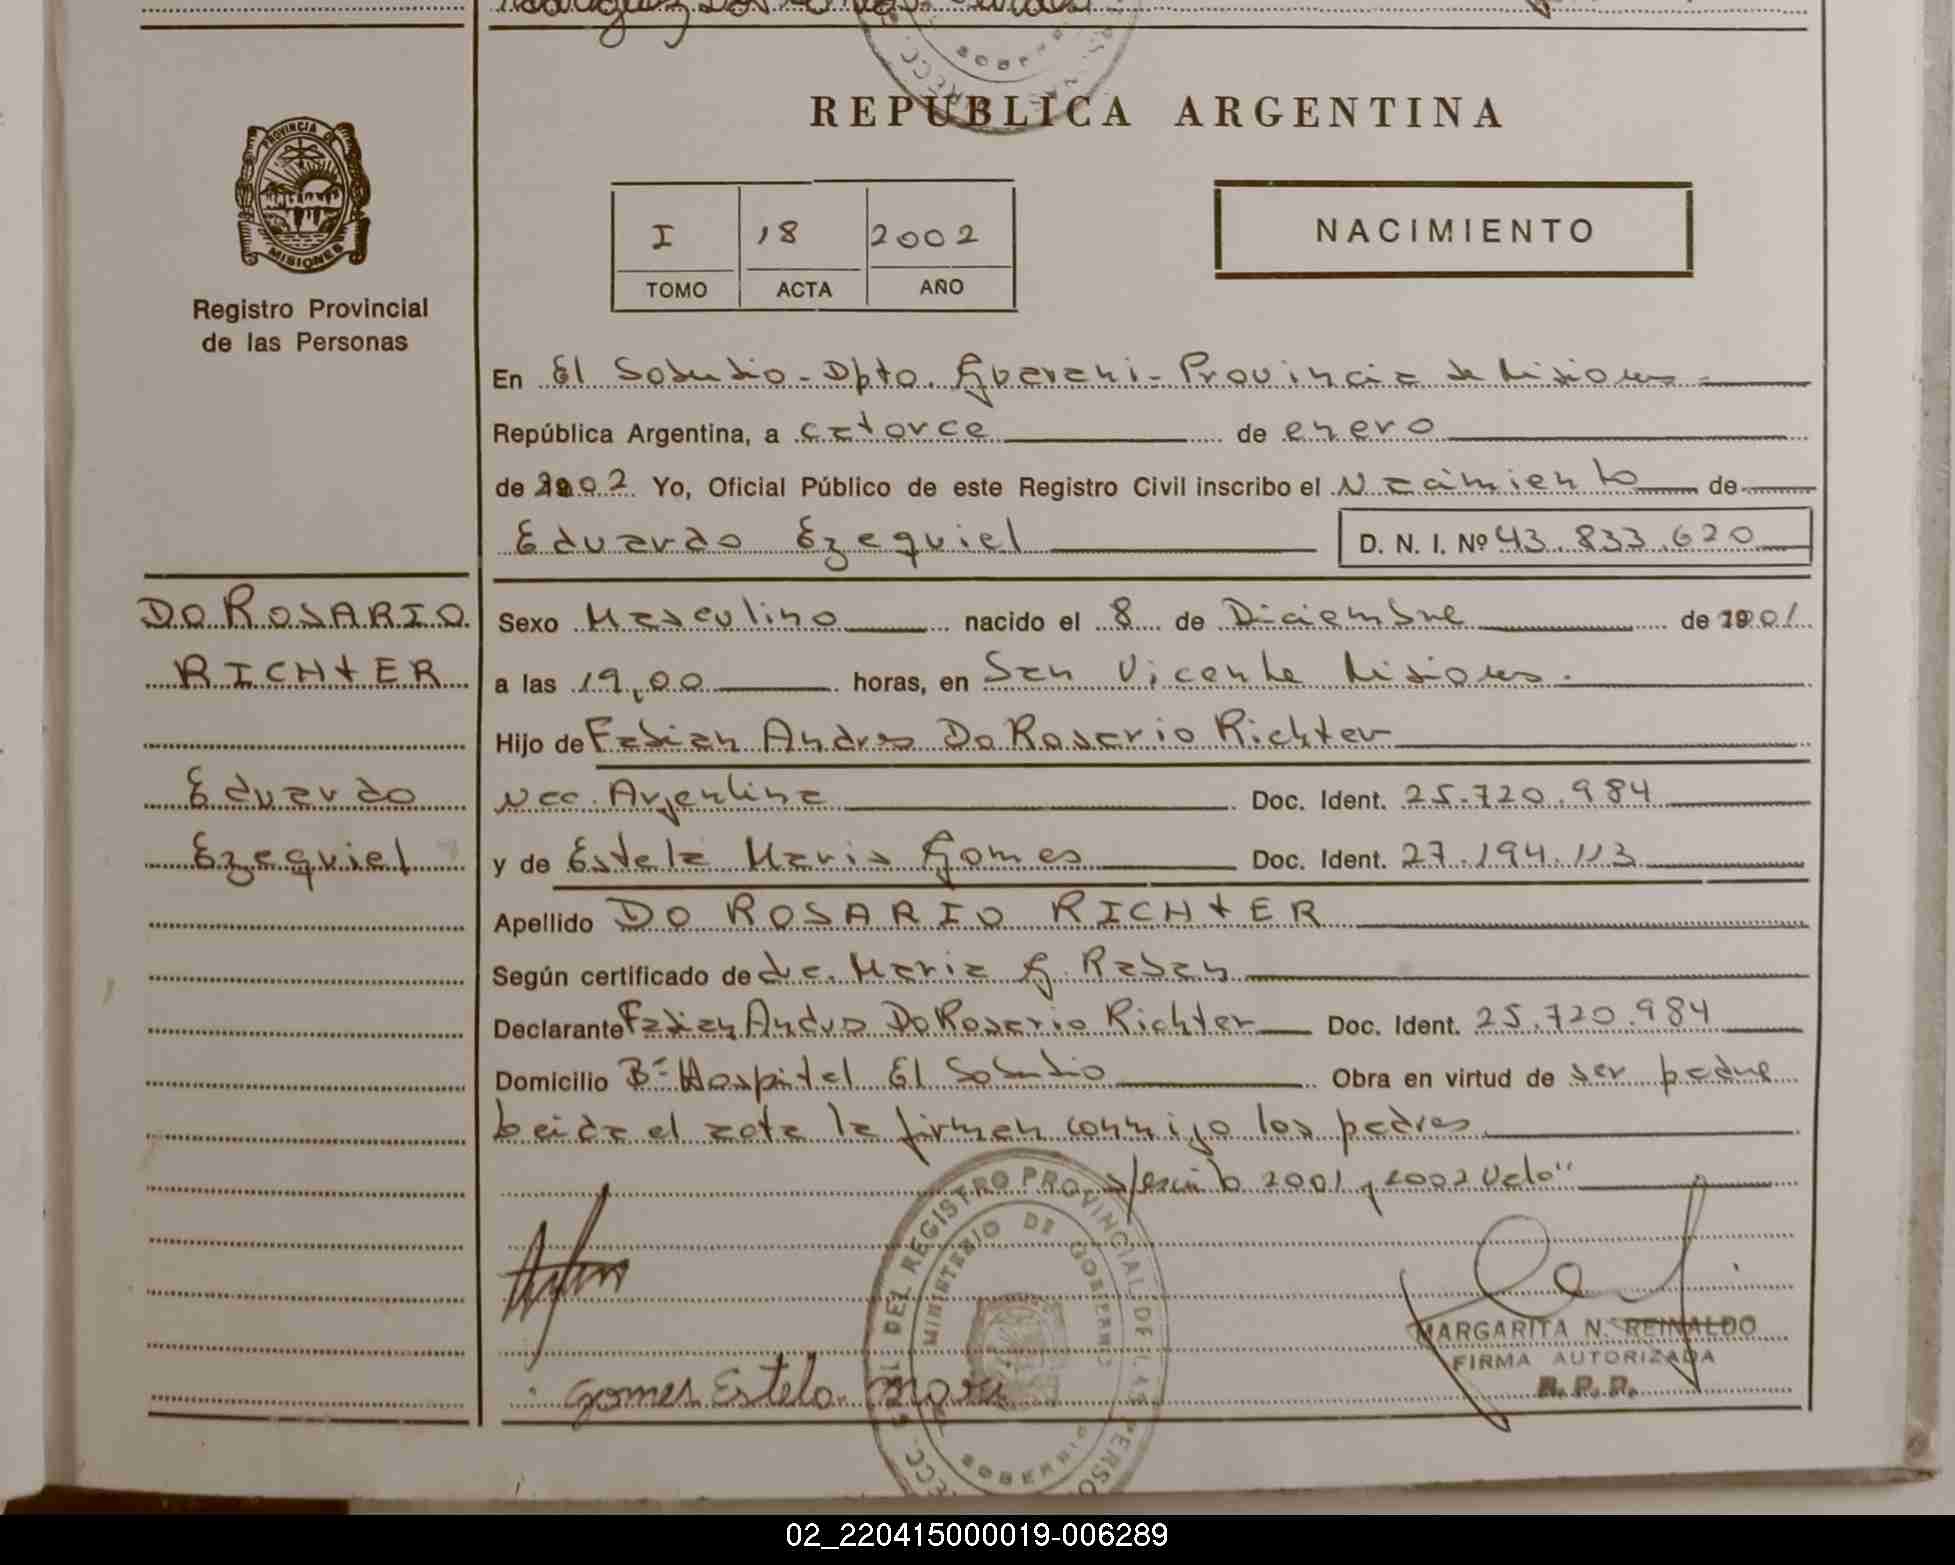 REPUBLICA ARGENTINA
PROVINCIA DE
MISIONES
Registro Provincial
de las Personas
I 18 2002
TOMO ACTA AÑO
NACIMIENTO
En El Soberbio - Dpto. Guarani - Provincia de Misiones
República Argentina, a catorce de enero
de 2002 Yo, Oficial Público de este Registro Civil inscribo el Nacimiento de
Eduardo Ezequiel D. N. I. Nº 43.833.620
DO ROSARIO
RICHTER
Eduardo
Ezequiel
Sexo Masculino nacido el 8 de Diciembre de 2001
a las 19,00 horas, en San Vicente Misiones.
Hijo de Fabian Andres Do Rosario Richter
Nac. Argentina Doc. Ident. 25.720.984
y de Estela Maria Gomes Doc. Ident. 27.194.113
Apellido DO ROSARIO RICHTER
Según certificado de Maria G. Raban
Declarante Fabian Andres Do Rosario Richter Doc. Ident. 25.720.984
Domicilio Bº Hospital El Soberbio Obra en virtud de ser padre
Leida el acta la firman conmigo los padres
s/escrito 2001 y 2002 Vale"
Gomes Estela Mari
MARGARITA N. REINALDO
FIRMA AUTORIZADA
R. P. P.
DEL REGISTRO PROVINCIAL DE LAS PERSO
MINISTERIO DE GOBIERNO
02_220415000019-006289